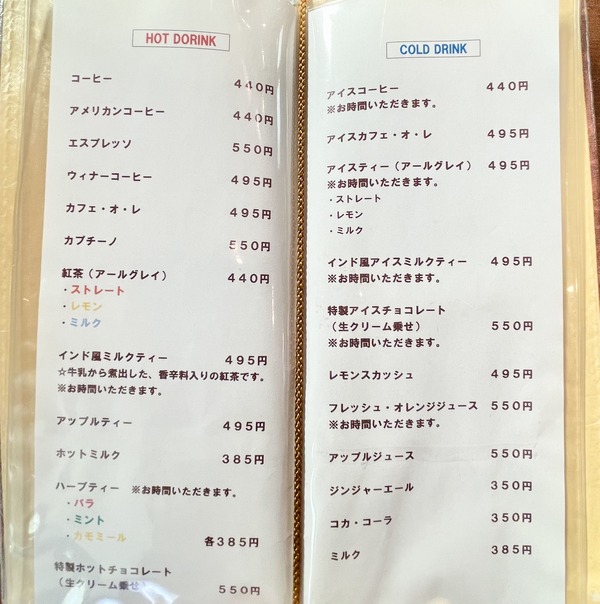 HOT DORINK
コーヒー 440円
アメリカンコーヒー 440円
エスプレッソ 550円
ウィナーコーヒー 495円
カフェ・オ・レ 495円
カプチーノ 550円
紅茶（アールグレイ） 440円
・ストレート
・レモン
・ミルク
インド風ミルクティー 495円
☆牛乳から煮出した、香辛料入りの紅茶です。
※お時間いただきます。
アップルティー 495円
ホットミルク 385円
ハーブティー ※お時間いただきます。
・バラ
・ミント
・カモミール 各385円
特製ホットチョコレート
（生クリーム乗せ） 550円
COLD DRINK
アイスコーヒー 440円
※お時間いただきます。
アイスカフェ・オ・レ 495円
アイスティー（アールグレイ） 495円
※お時間いただきます。
・ストレート
・レモン
・ミルク
インド風アイスミルクティー 495円
※お時間いただきます。
特製アイスチョコレート
（生クリーム乗せ） 550円
※お時間いただきます。
レモンスカッシュ 495円
フレッシュ・オレンジジュース 550円
※お時間いただきます。
アップルジュース 550円
ジンジャーエール 350円
コカ・コーラ 350円
ミルク 385円